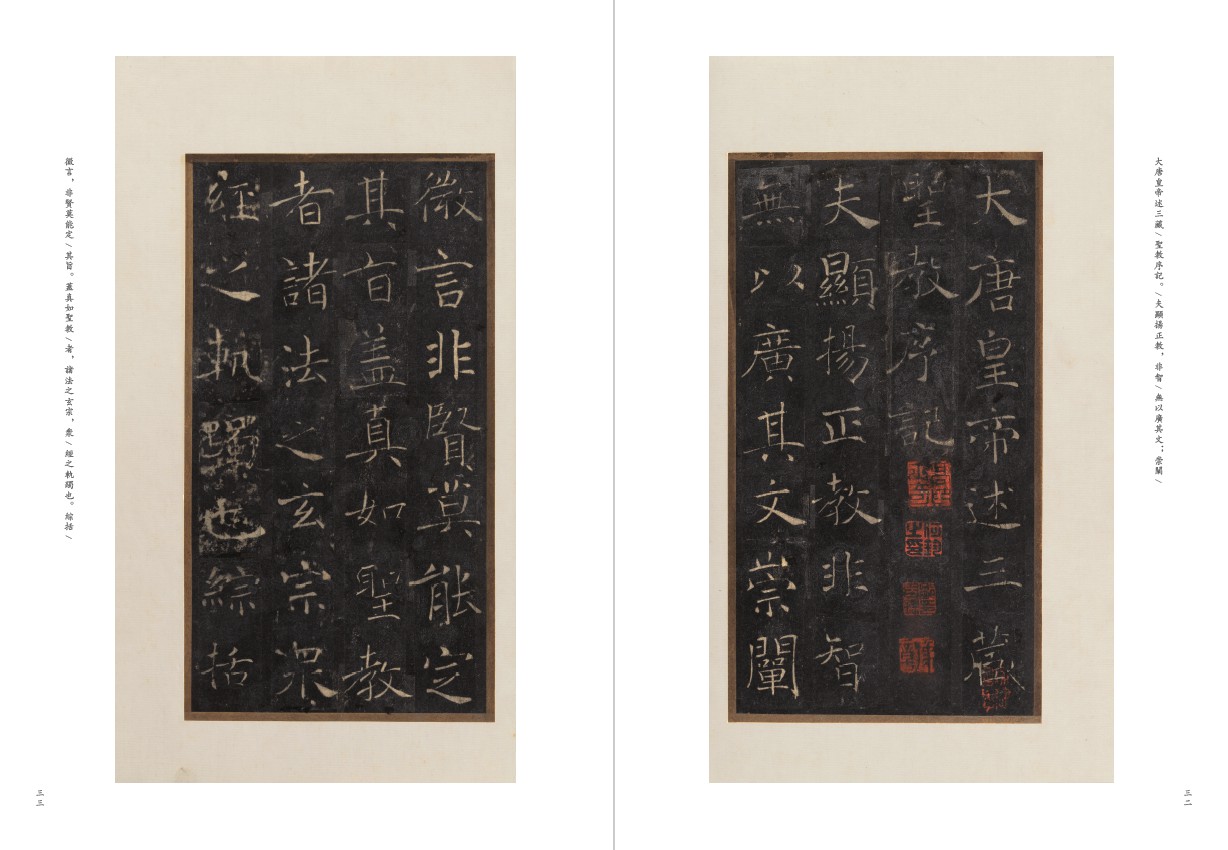 大唐皇帝述三藏/聖教序記。/夫顯揚正教，非智/無以廣其文；崇闡/
大唐皇帝述三藏
聖教序記
夫顯揚正教非智
無以廣其文崇闡
三二
微言非賢莫能定
其旨盖真如聖教
者諸法之玄宗衆
經之軌躅也綜括
微言，非賢莫能定/其旨。蓋真如聖教/者，諸法之玄宗，衆/經之軌躅也。綜括/
三三